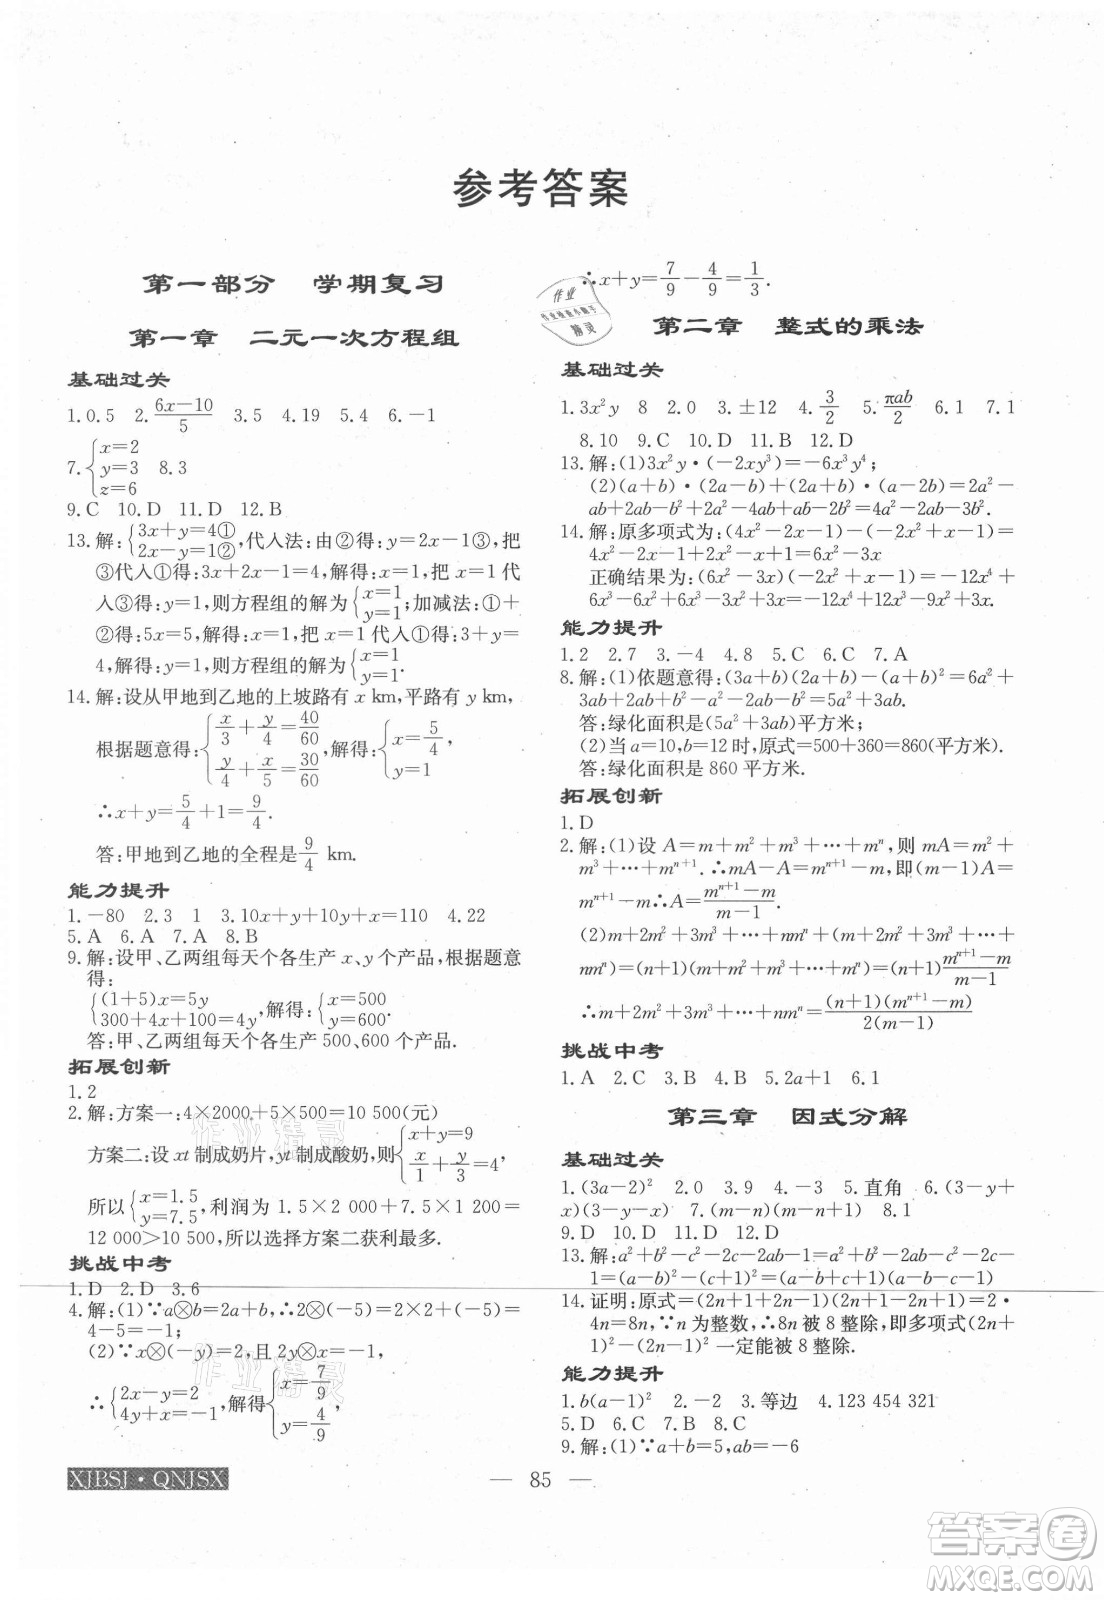 参考答案
第一部分 学期复习
第一章 二元一次方程组
基础过关
1.0.5 2.(6x-10)/5 3.5 4.19 5.4 6.-1
7.{x=2 y=3 z=6 8.3
9.C 10.D 11.D 12.B
13.解:{3x+y=4① 2x-y=1②,代入法:由②得:y=2x-1③,把
③代入①得:3x+2x-1=4,解得:x=1,把x=1
代入③得:y=1,则方程组的解为{x=1 y=1;加减法:①+
②得:5x=5,解得:x=1,把x=1代入①得:3+y=
4,解得:y=1,则方程组的解为{x=1 y=1.
14.解:设从甲地到乙地的上坡路有x km,平路有y km,
根据题意得:{x/3+y/4=40/60 y/4+x/5=30/60,解得:{x=5/4 y=1,
∴x+y=5/4+1=9/4.
答:甲地到乙地的全程是9/4 km.
能力提升
1.-80 2.3 1 3.10x+y+10y+x=110 4.22
5.A 6.A 7.A 8.B
9.解:设甲、乙两组每天个各生产x、y个产品,根据题意
得:
{(1+5)x=5y 300+4x+100=4y,解得:{x=500 y=600.
答:甲、乙两组每天个各生产500、600个产品.
拓展创新
1.2
2.解:方案一:4×2000+5×500=10 500(元)
方案二:设xt制成奶片,yt制成酸奶,则{x+y=9 x/1+y/3=4,
所以{x=1.5 y=7.5,利润为1.5×2000+7.5×1200=
12 000>10 500,所以选择方案二获利最多.
挑战中考
1.D 2.D 3.6
4.解:(1)∵a⊗b=2a+b,∴2⊗(-5)=2×2+(-5)=
4-5=-1;
(2)∵x⊗(-y)=2,且2y⊗x=-1,
∴{2x-y=2 4y+x=-1,解得{x=7/9 y=-4/9,
∴x+y=7/9-4/9=1/3.
第二章 整式的乘法
基础过关
1.3x²y 8 2.0 3.±12 4.3/2 5.πab/2 6.1 7.1
8.10 9.C 10.D 11.D 12.D
13.解:(1)3x²y·(-2xy³)=-6x³y⁴;
(2)(a+b)·(2a-b)-(a+b)·(a-2b)=2a²-
ab+2ab-b²-a²+2ab-ab+2b²=a²+2ab+b².
14.解:原多项式为:(4x²-2x-1)-(-2x²+x-1)=
4x²-2x-1+2x²-x+1=6x²-3x
正确结果为:(6x²-3x)(-2x²+x-1)=-12x⁴+
6x³-6x²+6x³-3x²+3x=-12x⁴+12x³-9x²+3x.
能力提升
1.2 2.7 3.-4 4.8 5.C 6.C 7.A
8.解:(1)依题意得:(3a+b)(2a+b)-(a+b)²=6a²+
3ab+2ab+b²-a²-2ab-b²=5a²+3ab.
答:绿化面积是(5a²+3ab)平方米;
(2)当a=10,b=12时,原式=500+360=860(平方米).
答:绿化面积是860平方米.
拓展创新
1.D
2.解:(1)设A=m+m²+m³+…+mⁿ,则mA=m²+
m³+…+mⁿ⁺¹.∴mA-A=mⁿ⁺¹-m,即(m-1)A=
mⁿ⁺¹-m∴A=(mⁿ⁺¹-m)/(m-1).
(2)m+2m²+3m³+…+nmⁿ+m+2m²+3m³+…+
nmⁿ)=(n+1)(m+m²+…+mⁿ)=(n+1)(mⁿ⁺¹-m)/(m-1)
∴m+2m²+3m³+…+nmⁿ=(n+1)(mⁿ⁺¹-m)/2(m-1)
挑战中考
1.A 2.C 3.B 4.B 5.2a+1 6.1
第三章 因式分解
基础过关
1.(3a-2)² 2.0 3.9 4.-3 5.直角 6.(3-y+
x)(3-y-x) 7.(m-n)(m-n-1) 8.1
9.D 10.D 11.D 12.D
13.解:a²+b²-c²-2ab+2c-1=(a-b)²-c²+2c-
1=(a-b)²-(c-1)²=(a-b+c-1)(a-b-c+1)
14.证明:原式=(2n+1+2n-1)(2n+1-2n+1)=2·
4n=8n,∵n为整数,∴8n被8整除,即多项式(2n+
1)²-(2n-1)²一定能被8整除.
能力提升
1.b(a-1)² 2.-2 3.等边 4.123 454 321
5.D 6.C 7.B 8.C
9.解:(1)∵a+b=5,ab=-6
XJBSJ·QNJSX
— 85 —
作业
精灵
作业精灵
作业精灵
答案卷
MXQE.COM